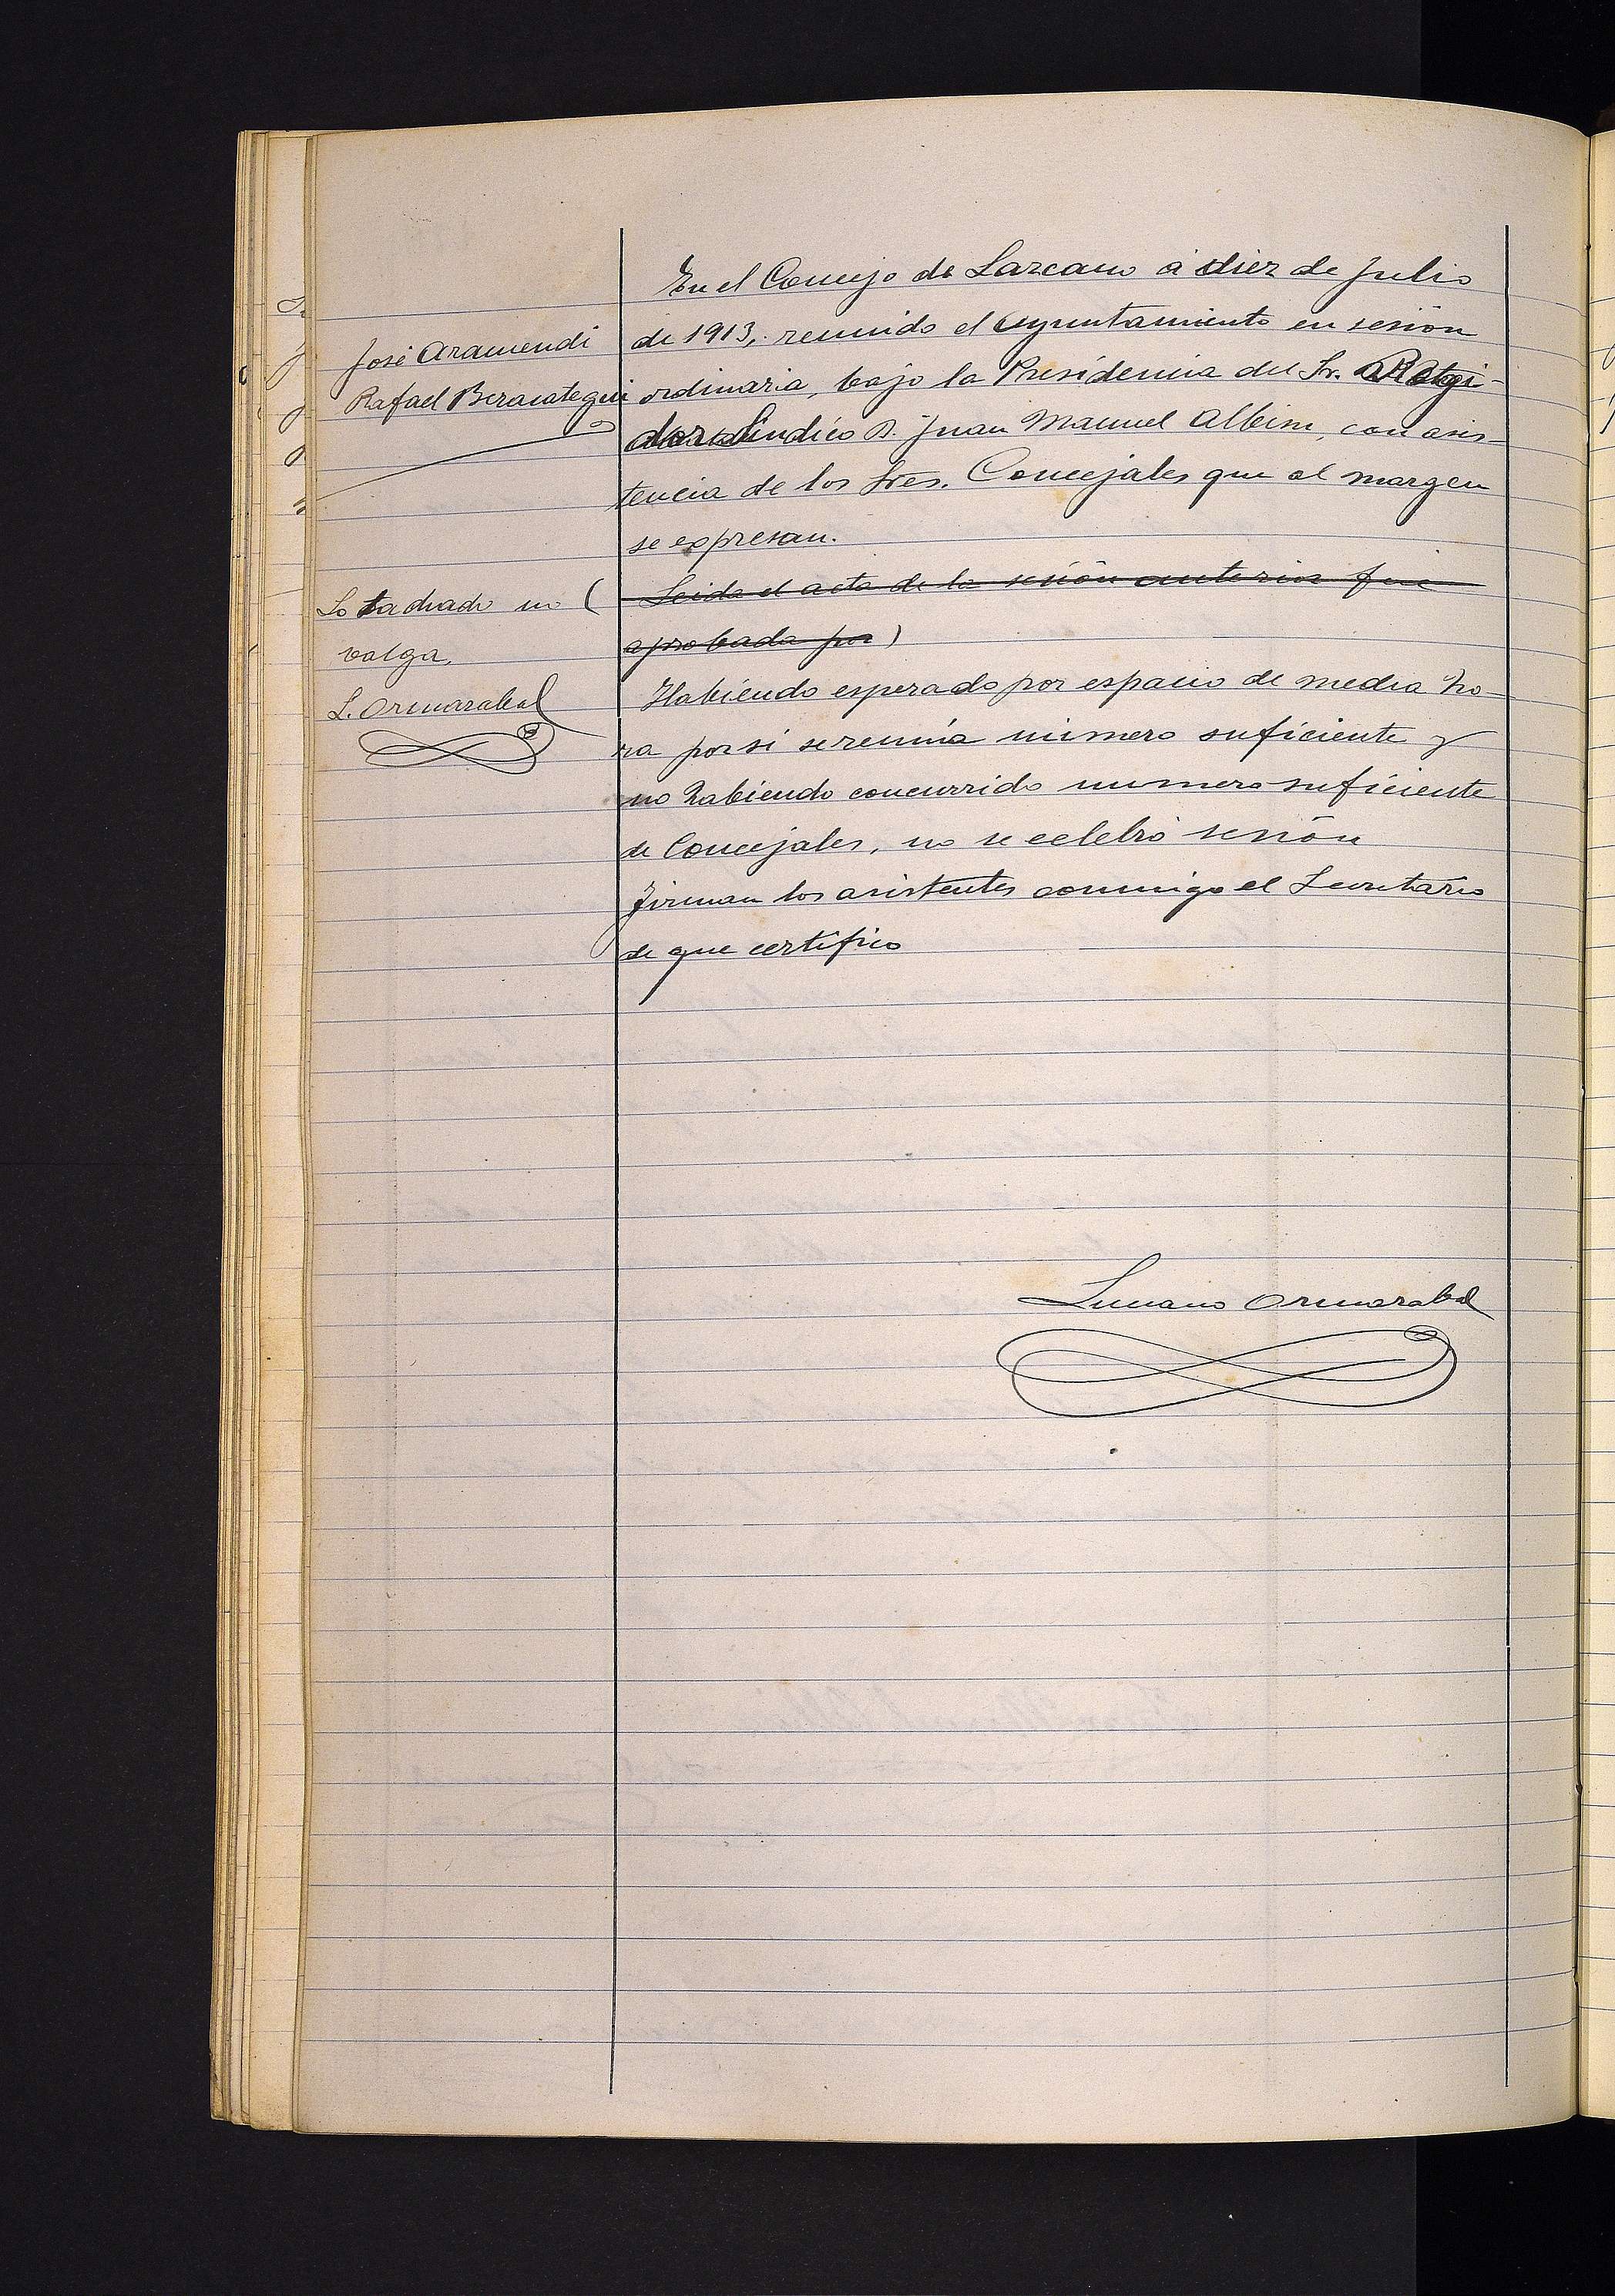 José Aramendi
Rafael Beracategui
Lo tachado no (
valga.
L. Ormazabal
En el Concejo de Lazcano á diez de Julio
de 1913, reunido el Ayuntamiento en sesión
ordinaria, bajo la Presidencia del Sr. Regi-
dor Sindico D. Juan Manuel Albisu, con asis-
tencia de los Sres. Concejales que al margen
se expresan.
Leida el acta de la sesión anterior fue
aprobada por)
Habiendo esperado por espacio de media ho-
ra por si se reunía número suficiente y
no habiendo concurrido numero suficiente
de Concejales, no se celebró sesión
Firman los asistentes conmigo el Secretario
de que certifico
Luciano Ormazabal